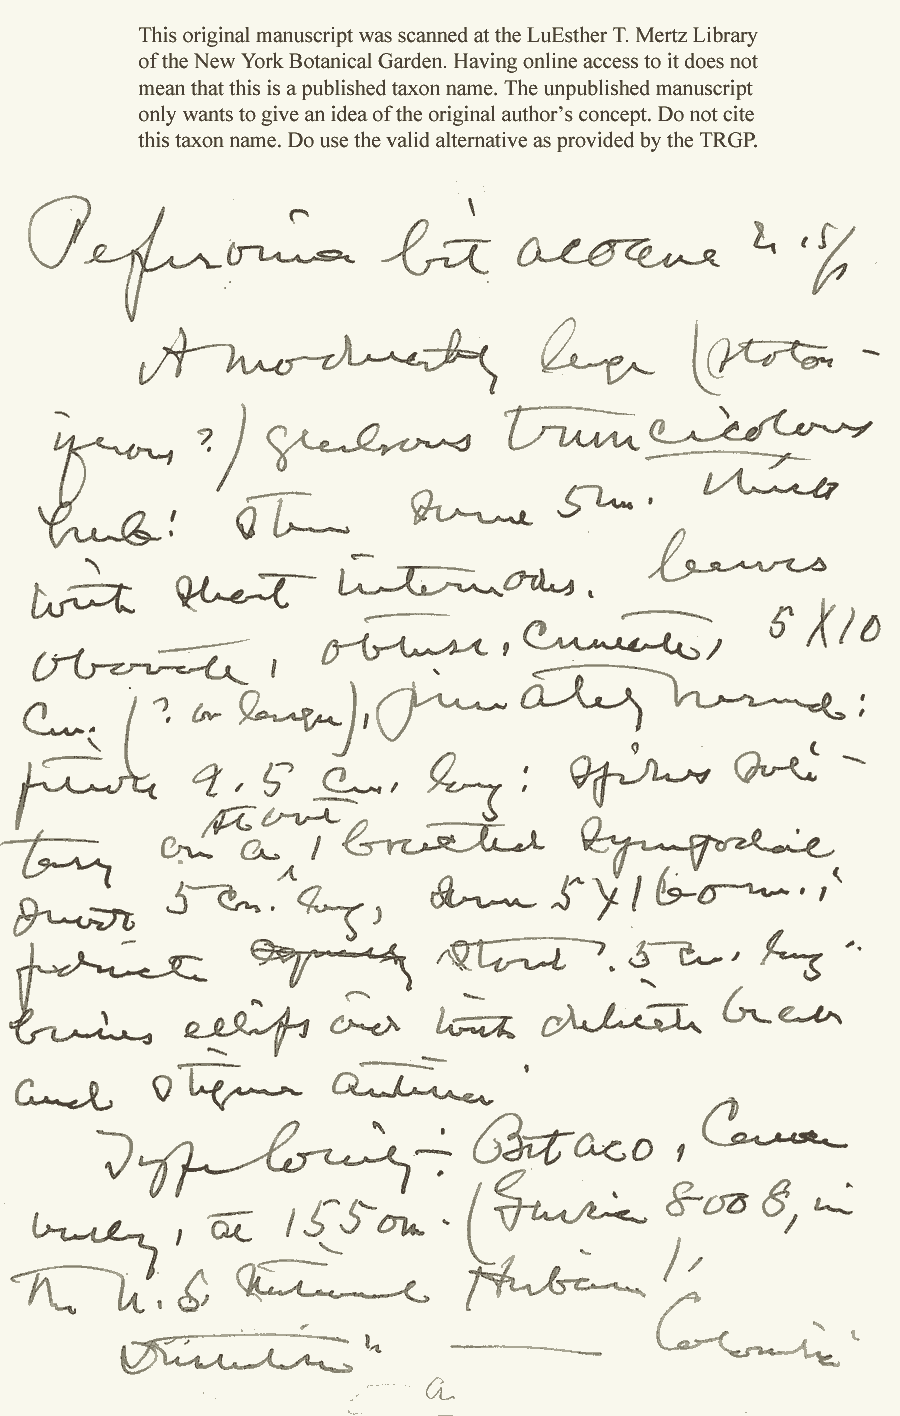 This original manuscript was scanned at the LuEsther T. Mertz Library
of the New York Botanical Garden. Having online access to it does not
mean that this is a published taxon name. The unpublished manuscript
only wants to give an idea of the original author's concept. Do not cite
this taxon name. Do use the valid alternative as provided by the TRGP.
Peperomia bitacoana n. sp.
A moderately large (stolon-
iferous?) glabrous truncicolous
herb: Stem some 5 mm. thick
with short internodes. Leaves
obovate, obtuse, cuneate, 5 X 10
cm. (? or larger), pinnately nerved:
petiole 2.5 cm. long: spikes soli-
tary on a stout 1 bracted sympodial
5 cm. long, 5 X 160 mm.;
peduncle stout .5 cm. long:
berries ellipsoid with delicate beak
and stigma
Type locality: Bitaco, Cauca
valley, at 1550 m. (Garcia 8008, in
the U.S. National Herbarium),
Distribution: — Colombia